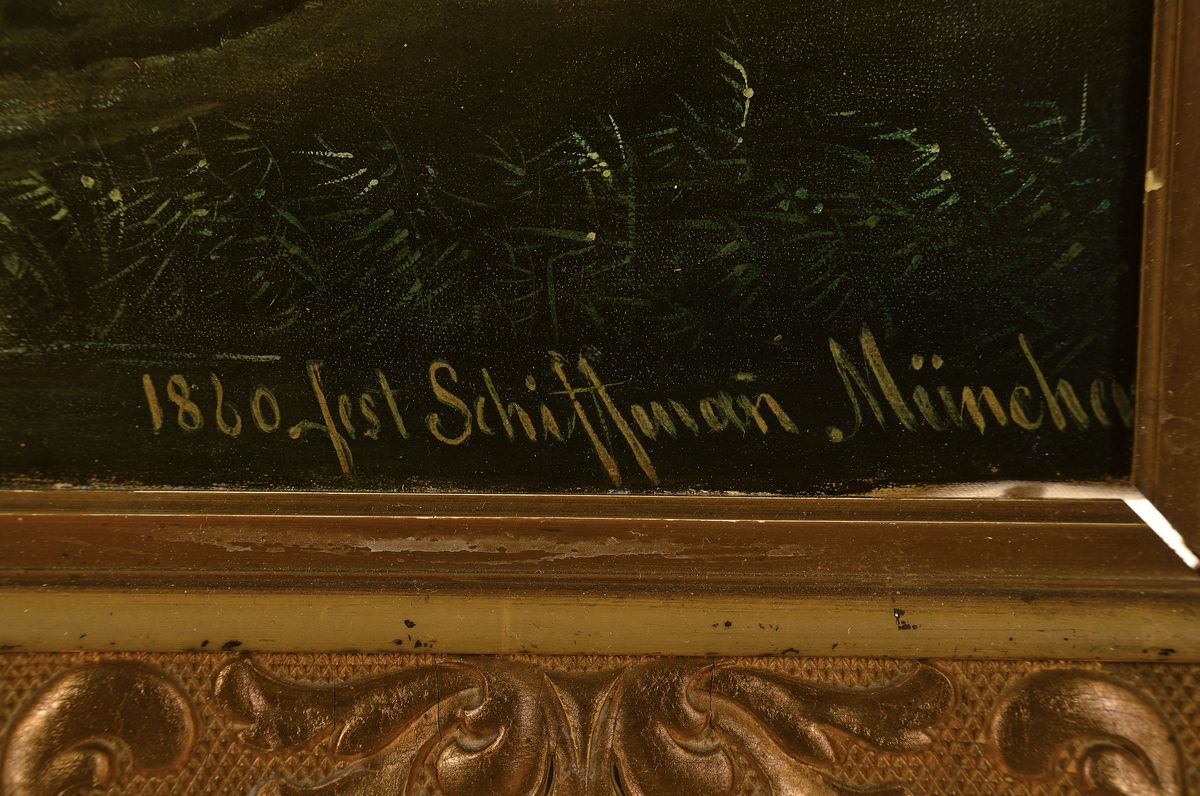 1860 fest Schiffman̄ Münche